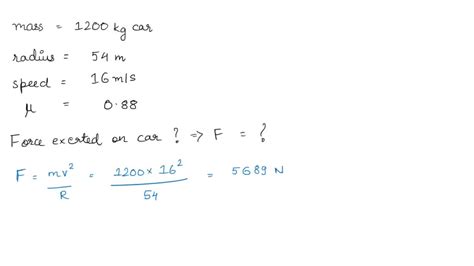 mass = 1200 kg car
radius = 54 m
speed = 16 m/s
μ = 0.88
Force exerted on car ? ⇒ F = ?
F = mv²/R = 1200 × 16²/54 = 5689 N